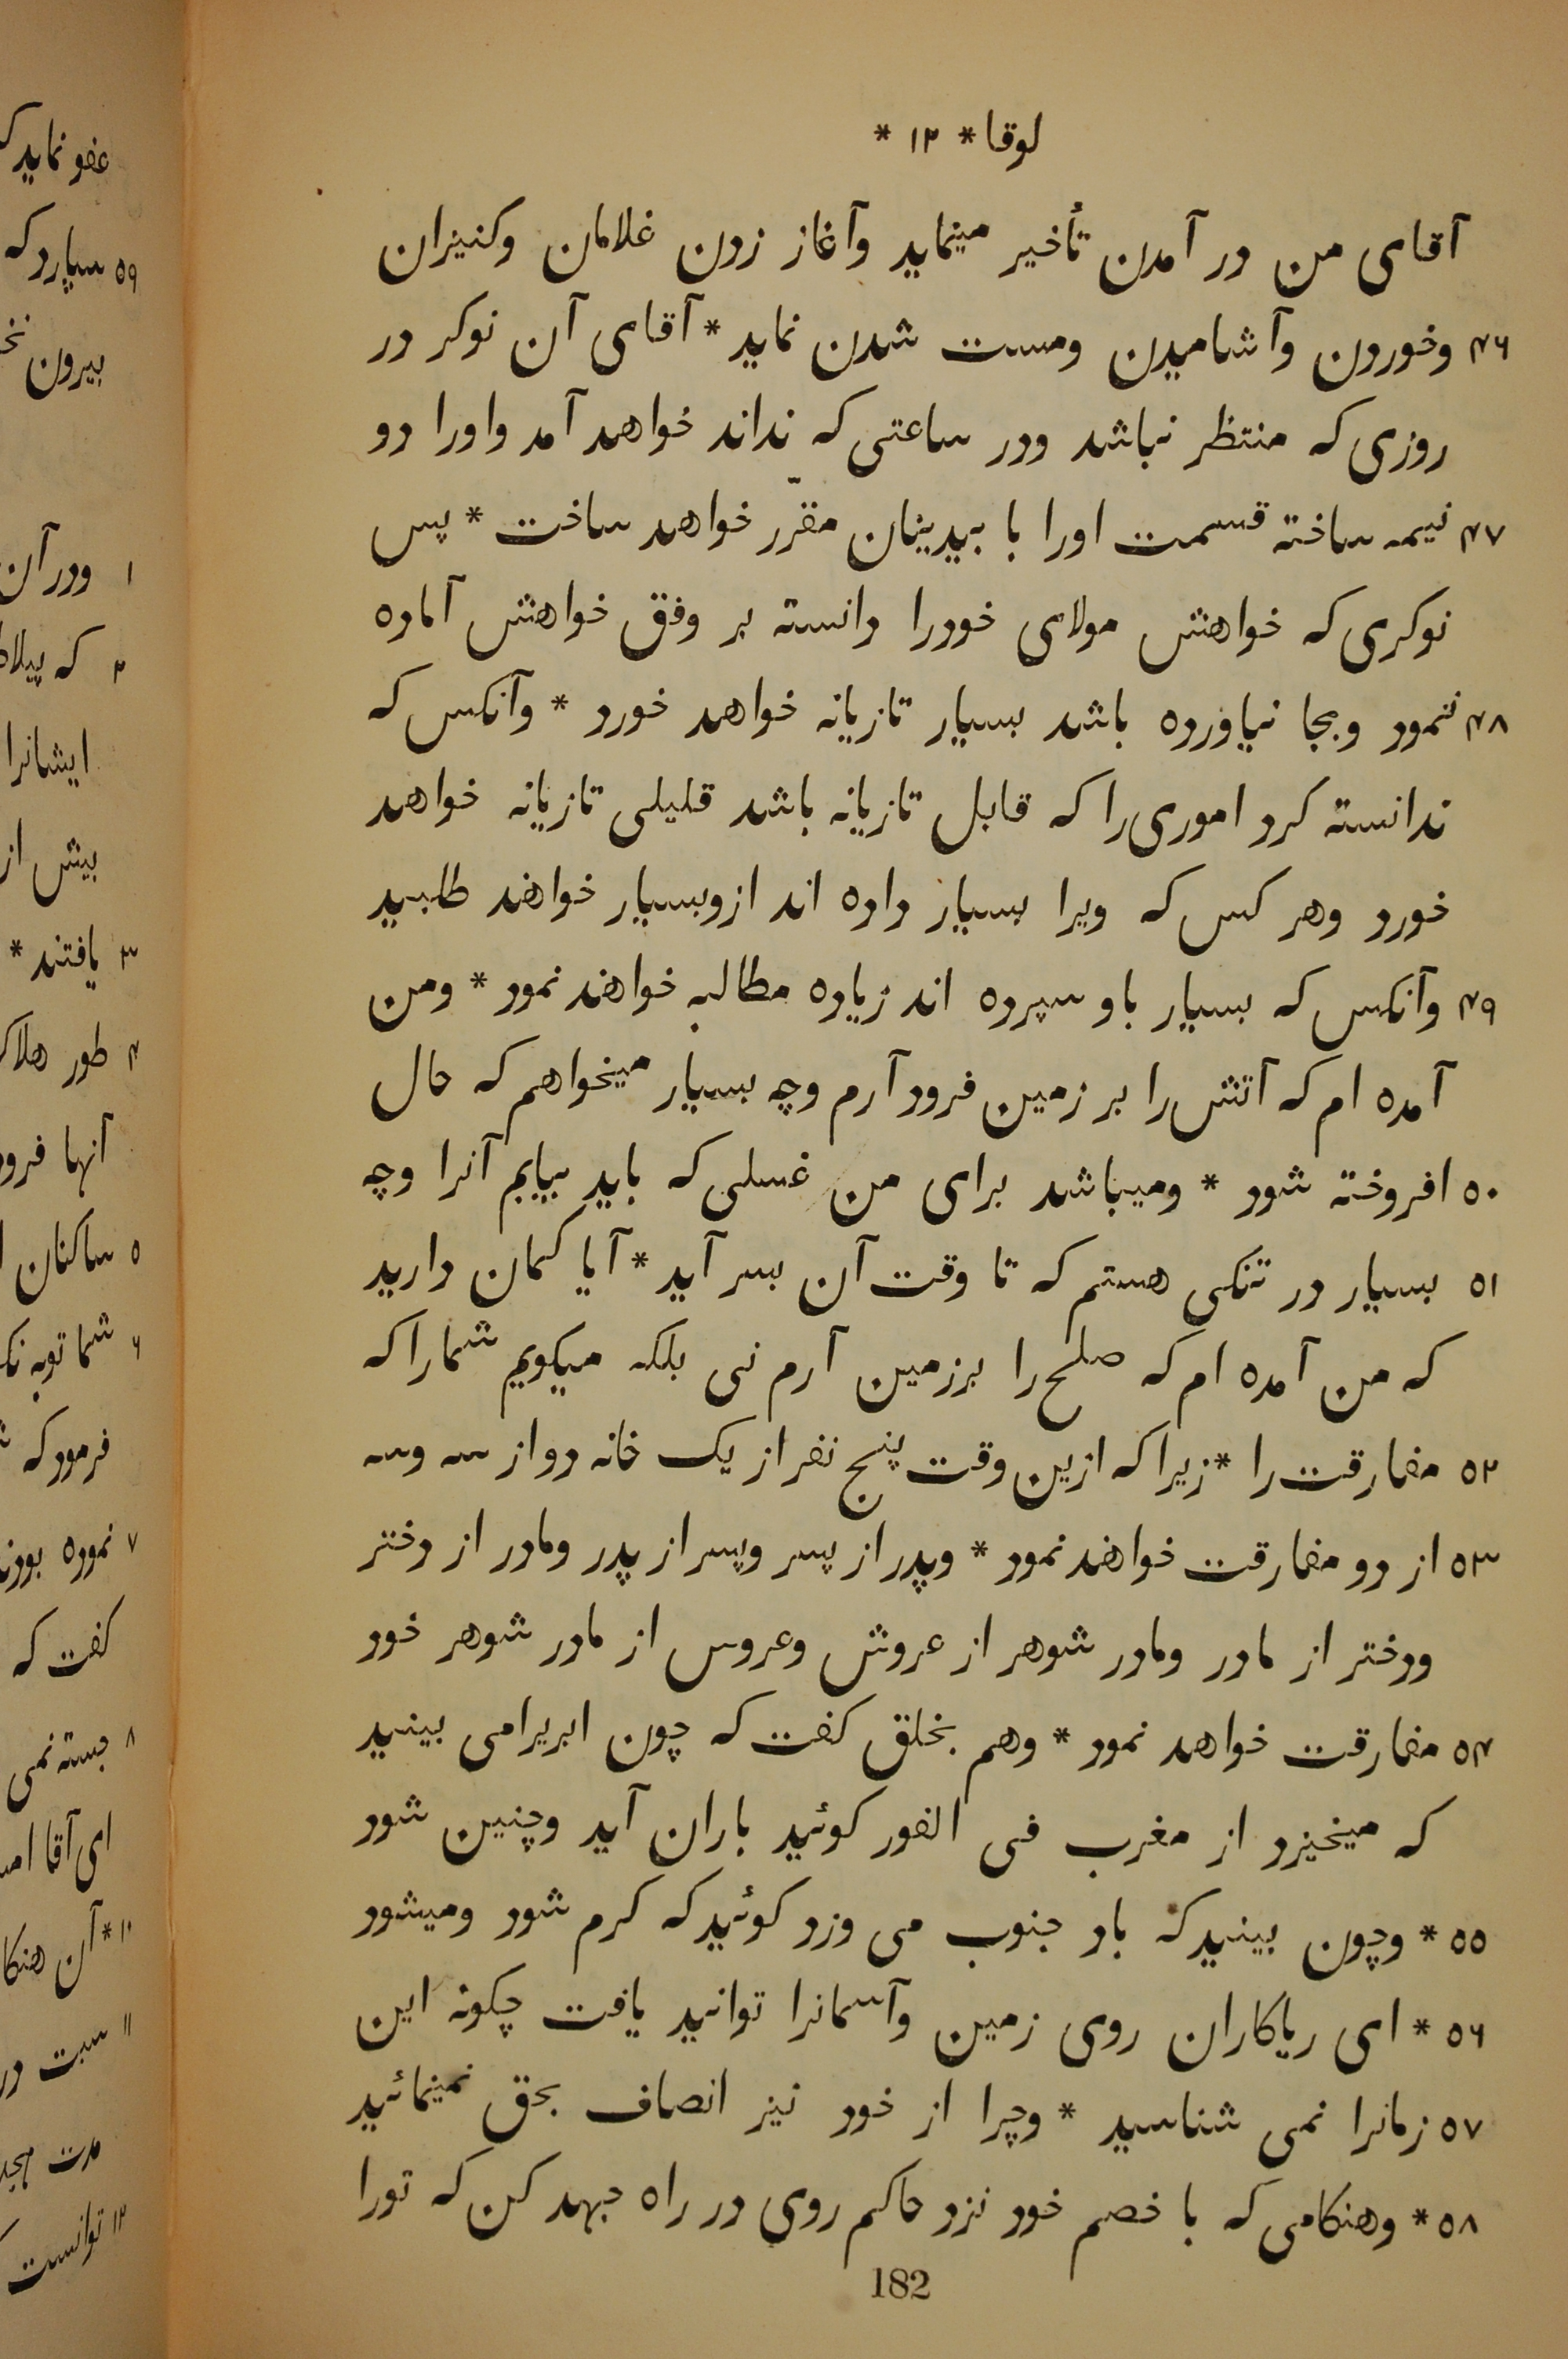 لوقا * ۱۲ *
آقای من در آمدن تأخیر مینماید وآغاز زدن غلامان وکنیزان
۴۶ وخوردن وآشامیدن ومست شدن نماید * آقای آن نوکر در
روزی که منتظر نباشد ودر ساعتی که نداند خواهد آمد واورا دو
۴۷ نیمه ساخته قسمت اورا با بیدینان مقرّر خواهد ساخت * پس
نوکری که خواهش مولای خودرا دانسته بر وفق خواهش آماده
۴۸ ننمود وبجا نیاورده باشد بسیار تازیانه خواهد خورد * وآنکس که
ندانسته کرد اموری را که قابل تازیانه باشد قلیلی تازیانه خواهد
خورد وهر کس که ویرا بسیار داده اند ازوبسیار خواهند طلبید
۴۹ وآنکس که بسیار باو سپرده اند زیاده مطالبه خواهند نمود * ومن
آمده ام که آتش را بر زمین فرود آرم وچه بسیار میخواهم که حال
۵۰ افروخته شود * ومیباشد برای من غسلی که باید بیابم آنرا وچه
۵۱ بسیار در تنکی هستم که تا وقت آن بسر آید * آیا کمان دارید
که من آمده ام که صلح را برزمین آرم نی بلکه میکویم شمارا که
۵۲ مفارقت را * زیرا که ازین وقت پنج نفر از یک خانه دو از سه وسه
۵۳ از دو مفارقت خواهند نمود * وپدر از پسر وپسر از پدر ومادر از دختر
ودختر از مادر ومادر شوهر از عروش وعروس از مادر شوهر خود
۵۴ مفارقت خواهد نمود * وهم بخلق کفت که چون ابریرا می بینید
که میخیزد از مغرب فی الفور کوئید باران آید وچنین شود
۵۵ * وچون بینید که باد جنوب می وزد کوئید که کرم شود ومیشود
۵۶ * ای ریاکاران روی زمین وآسمانرا توانید یافت چکونه این
۵۷ زمانرا نمی شناسید * وچرا از خود نیز انصاف بحق نمینمائید
۵۸ * وهنکامی که با خصم خود نزد حاکم روی در راه جهد کن که تورا
182
عفو نماید
۵۹ سپارد که
بیرون
۱ ودر آن
۲ که
ایشانرا
بیش از
۳ یافتند *
۴ طور
آنها
۵ ساکنان
۶ شما توبه
فرمود که
۷ نموده
کفت که
۸ جسته نمی
ای آقا
۱۰ * آن
۱۱ سبت در
مدت
۱۲ توانست